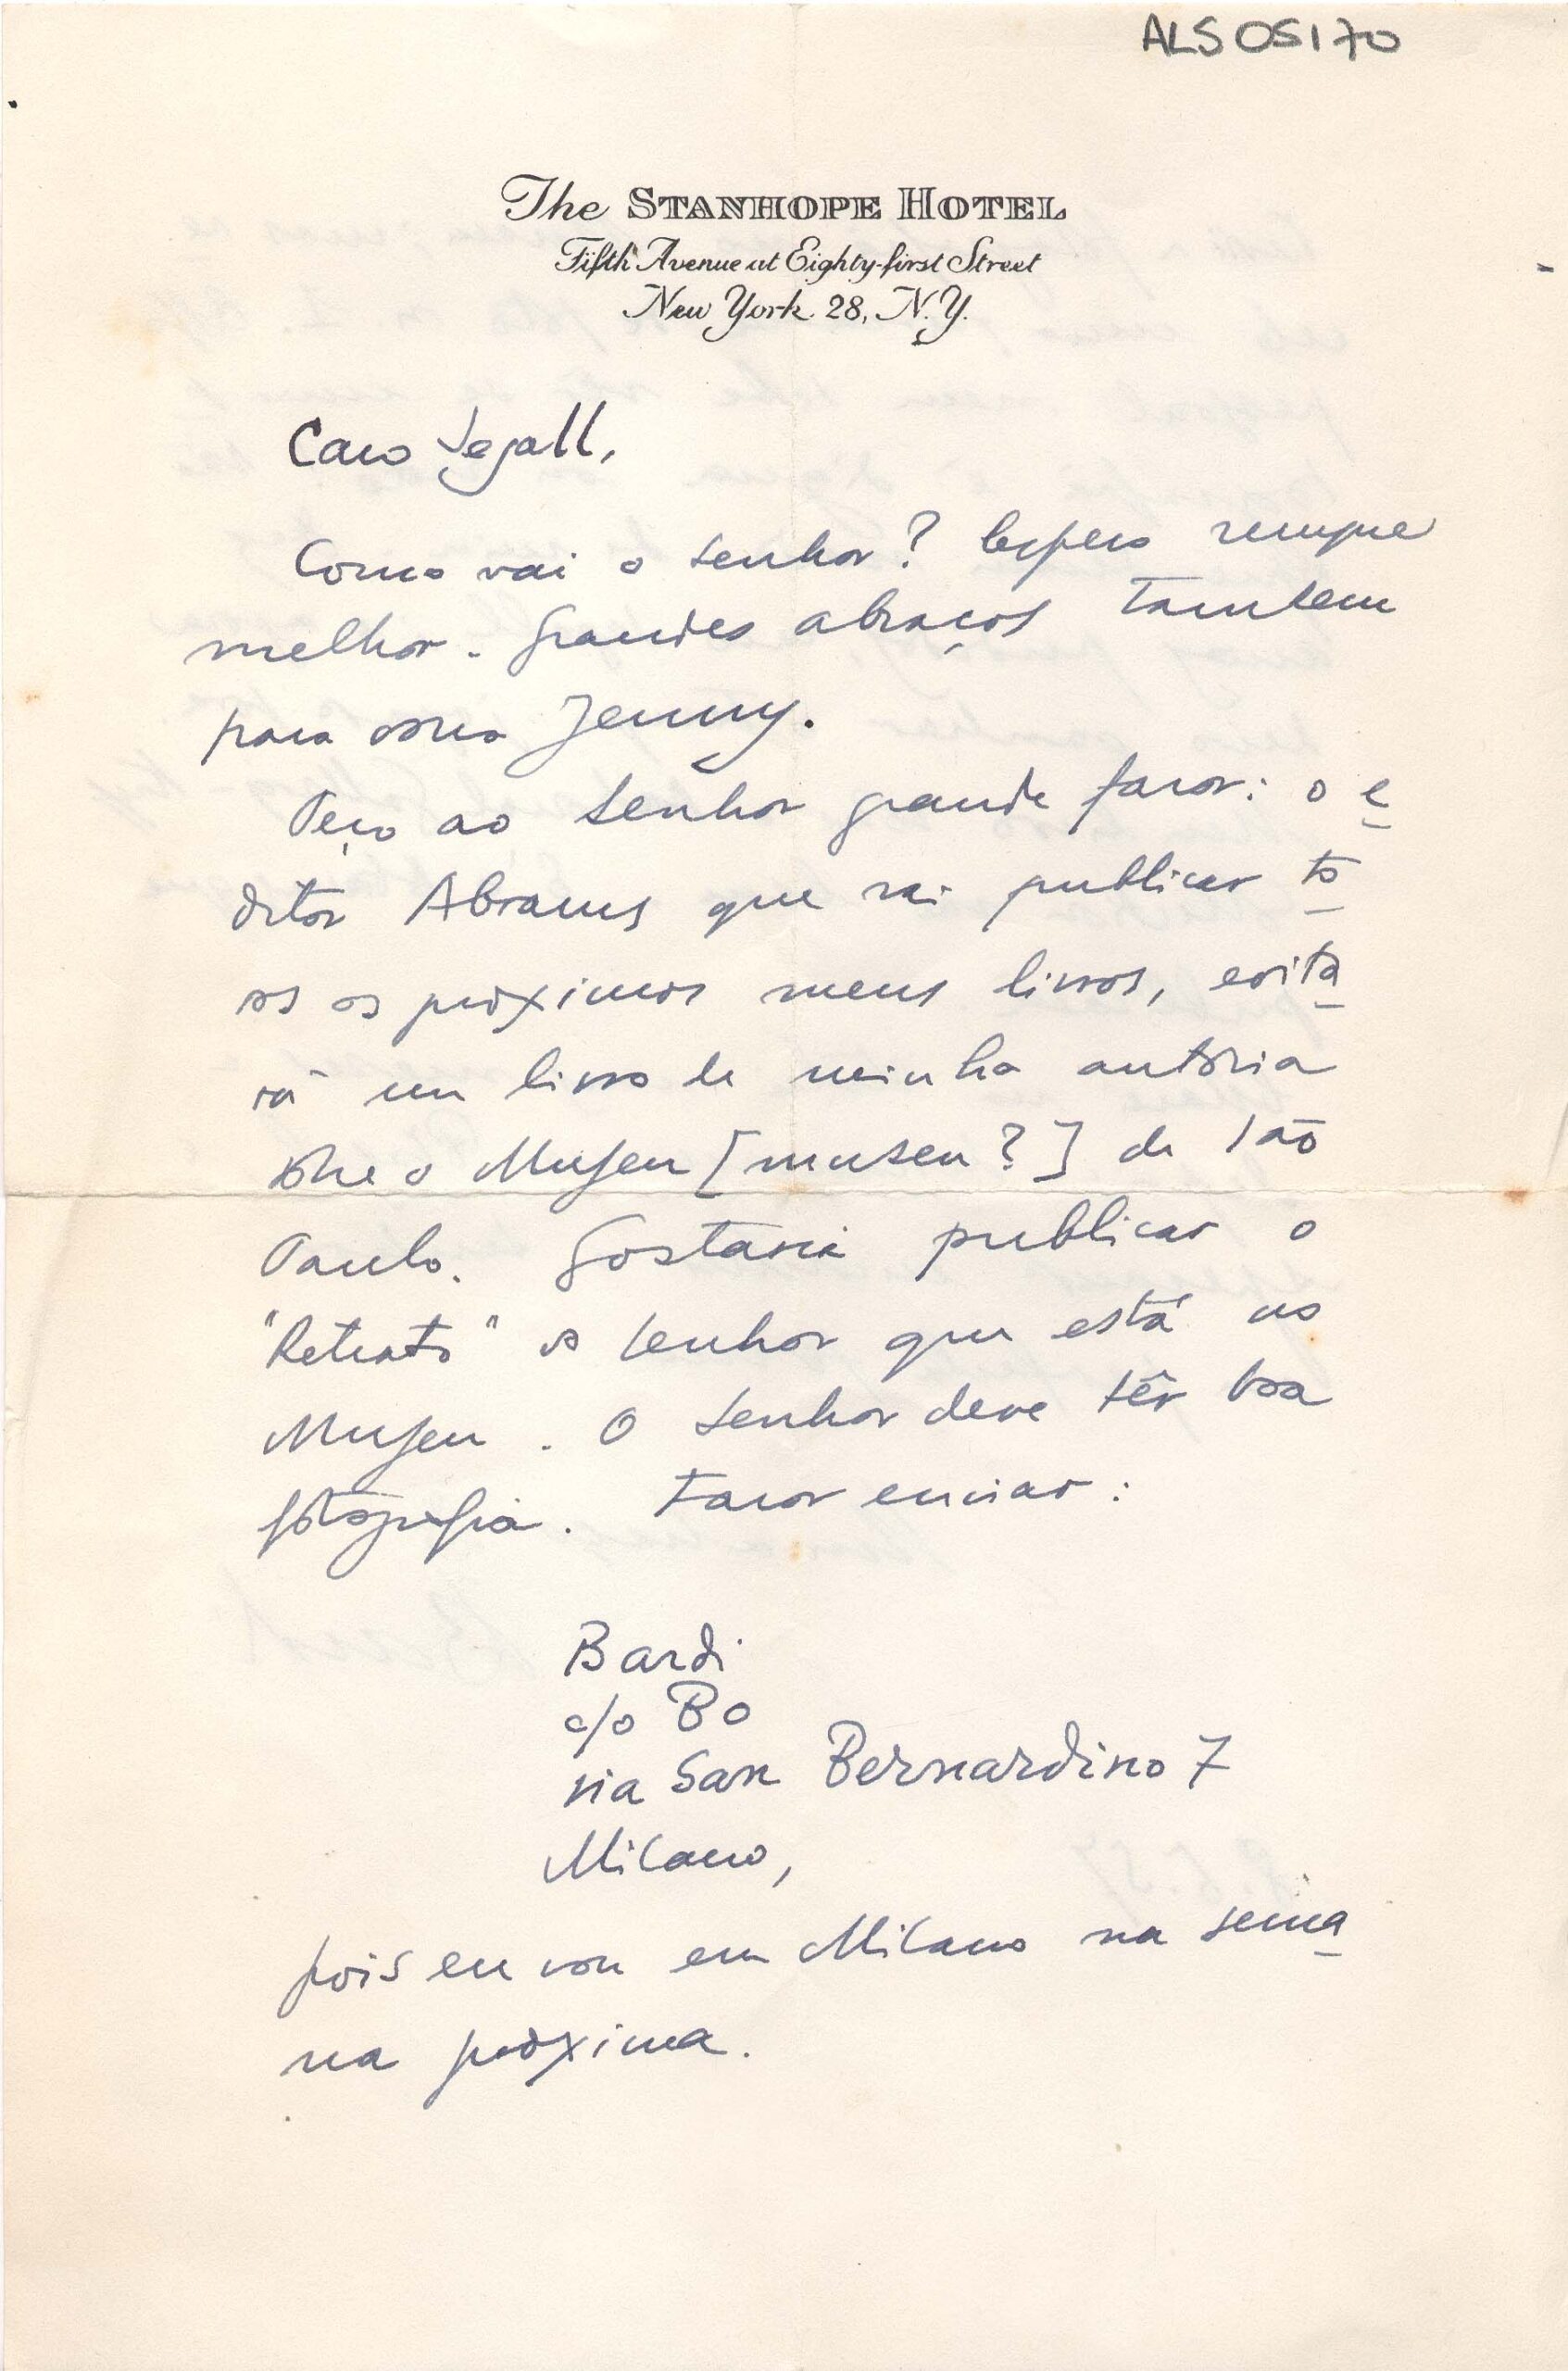 ALS 05170
The STANHOPE HOTEL
Fifth Avenue at Eighty-first Street
New York 28, N.Y.
Caro Segall,
Como vai o senhor? Espero sempre
melhor. Grandes abraços tambem
para dona Jenny.
Peço ao senhor grande favor: o e
ditor Abrams que vai publicar to
os os proximos meus livros, edita
rá um livro de minha autoria
sobre o Museu [museu?] de São
Paulo. Gostaria publicar o
"Retrato" do senhor que está no
Museu. O senhor deve têr boa
fotografia. Favor enviar:
Bardi
c/o Bo
via San Bernardino 7
Milano,
pois eu vou em Milano na sema
na proxima.